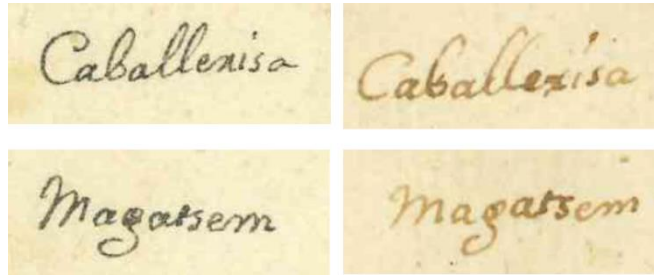 Caballerisa Caballerisa
Magatsem Magatsem